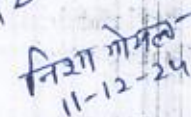 निशा गोयल
11-12-24